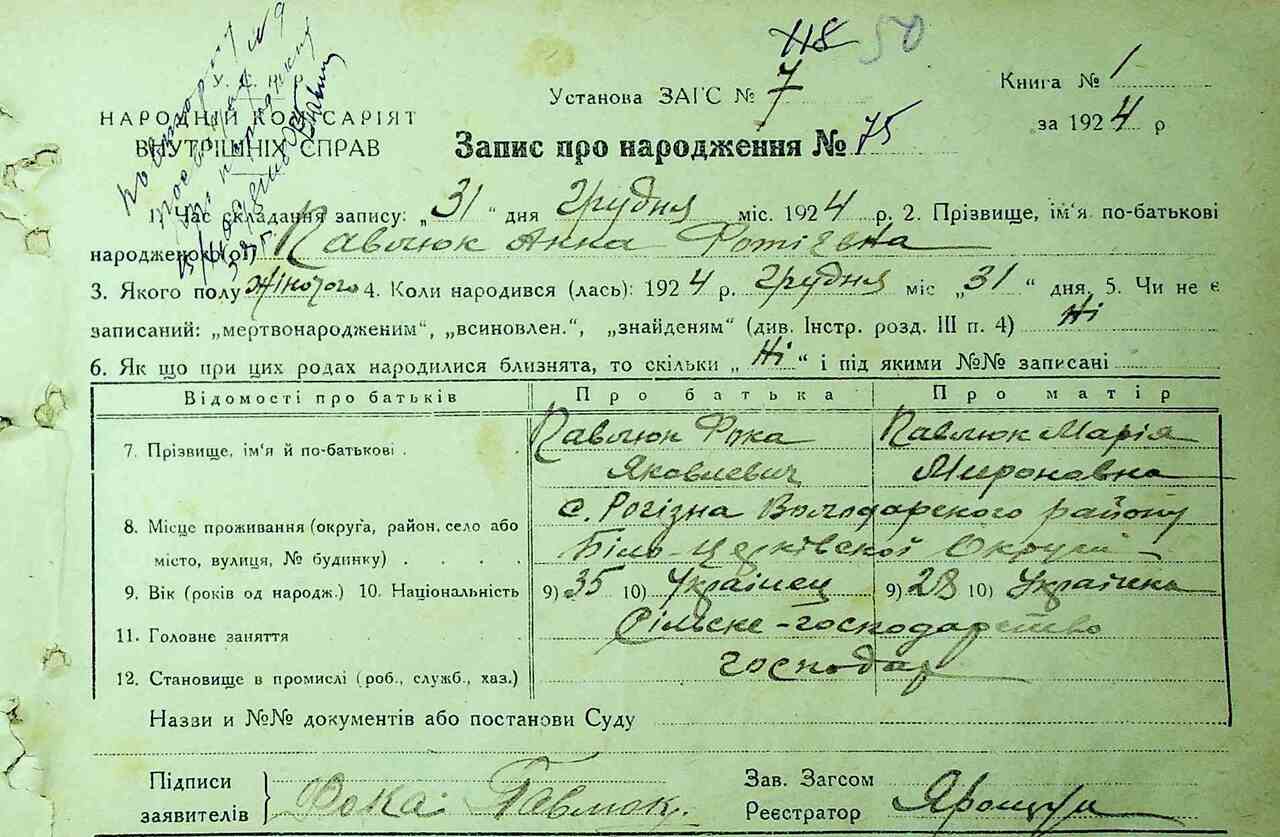 118 50
У. С. Р. Р.
НАРОДНІЙ КОМІСАРІЯТ
ВНУТРІШНІХ СПРАВ
Установа ЗАГС № 7
Книга № 1
за 1924 р
Запис про народження № 75
1. Час складання запису: „31“ дня Грудня міс. 1924 р. 2. Прізвище, ім'я по-батькові
народженого(ої) Павлюк Анна Фотієвна
3. Якого полу Жіночого 4. Коли народився (лась): 1924 р. Грудня міс „31“ дня. 5. Чи не є
записаний: „мертвонародженим“, „всиновлен.“, „знайденям“ (див. Інстр. розд. III п. 4) Ні
6. Як що при цих родах народилися близнята, то скільки „Ні“ і під якими №№ записані
Відомості про батьків Про батька Про матір
7. Прізвище, ім'я й по-батькові . Павлюк Фока Павлюк Марія
Яковлевич Миронавна
8. Місце проживання (округа, район, село або с. Рогізна Володарского району
місто, вулиця, № будинку) . . . . Біло-Церківскої Округи
9. Вік (років од народж.) 10. Національність 9) 35 10) Українец 9) 28 10) Українка
11. Головне заняття Сільске-господарство
12. Становище в промислі (роб., служб., хаз.) господар
Назви и №№ документів або постанови Суду
Підписи Зав. Загсом
заявителів Фока Павлюк. Реєстратор